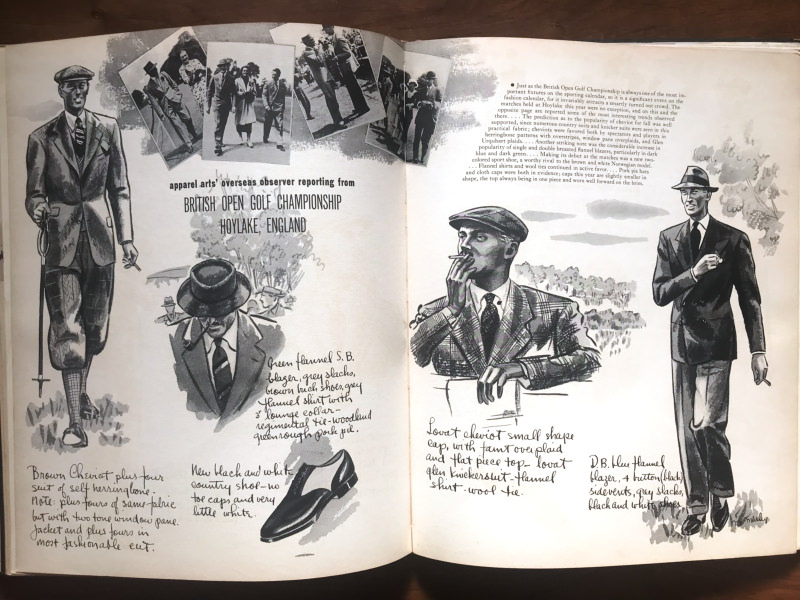 apparel arts' overseas observer reporting from
BRITISH OPEN GOLF CHAMPIONSHIP
HOYLAKE, ENGLAND
Green flannel S.B.
blazer, grey slacks,
brown buck shoes, grey
flannel shirt with
lounge collar-
regimental tie-woodland
green rough pork pie.
Brown Cheviot plus four
suit of self herringbone-
note: plus fours of same fabric
but with two tone window pane.
Jacket and plus fours in
most fashionable cut.
New black and white
country shoe-no
toe caps and very
little white.
● Just as the British Open Golf Championship is always one of the most im-
portant fixtures on the sporting calendar, so it is a significant event on the
fashion calendar, for it invariably attracts a smartly turned out crowd. The
matches held at Hoylake this year were no exception, and on this and the
opposite page are reported some of the most interesting trends observed
there. . . . The prediction as to the popularity of cheviot for fall was well
supported, since numerous country suits and knicker suits were seen in this
practical fabric; cheviots were favored both by spectators and players in
herringbone patterns with overstripes, window pane overplaids, and Glen
Urquhart plaids. . . . Another striking note was the considerable increase in
popularity of single and double breasted flannel blazers, particularly in dark
blue and dark green. . . . Making its debut at the matches was a new two-
colored sport shoe, a worthy rival to the brown and white Norwegian model.
. . . Flannel shirts and wool ties continued in active favor. . . . Pork pie hats
and cloth caps were both in evidence; caps this year are slightly smaller in
shape, the top always being in one piece and worn well forward on the brow.
Lovat cheviot small shape
cap, with faint overplaid
and flat piece top- lovat
glen knickersuit-flannel
shirt-wool tie.
D.B. blue flannel
blazer, 4 button (black),
sidevents, grey slacks,
black and white shoes.